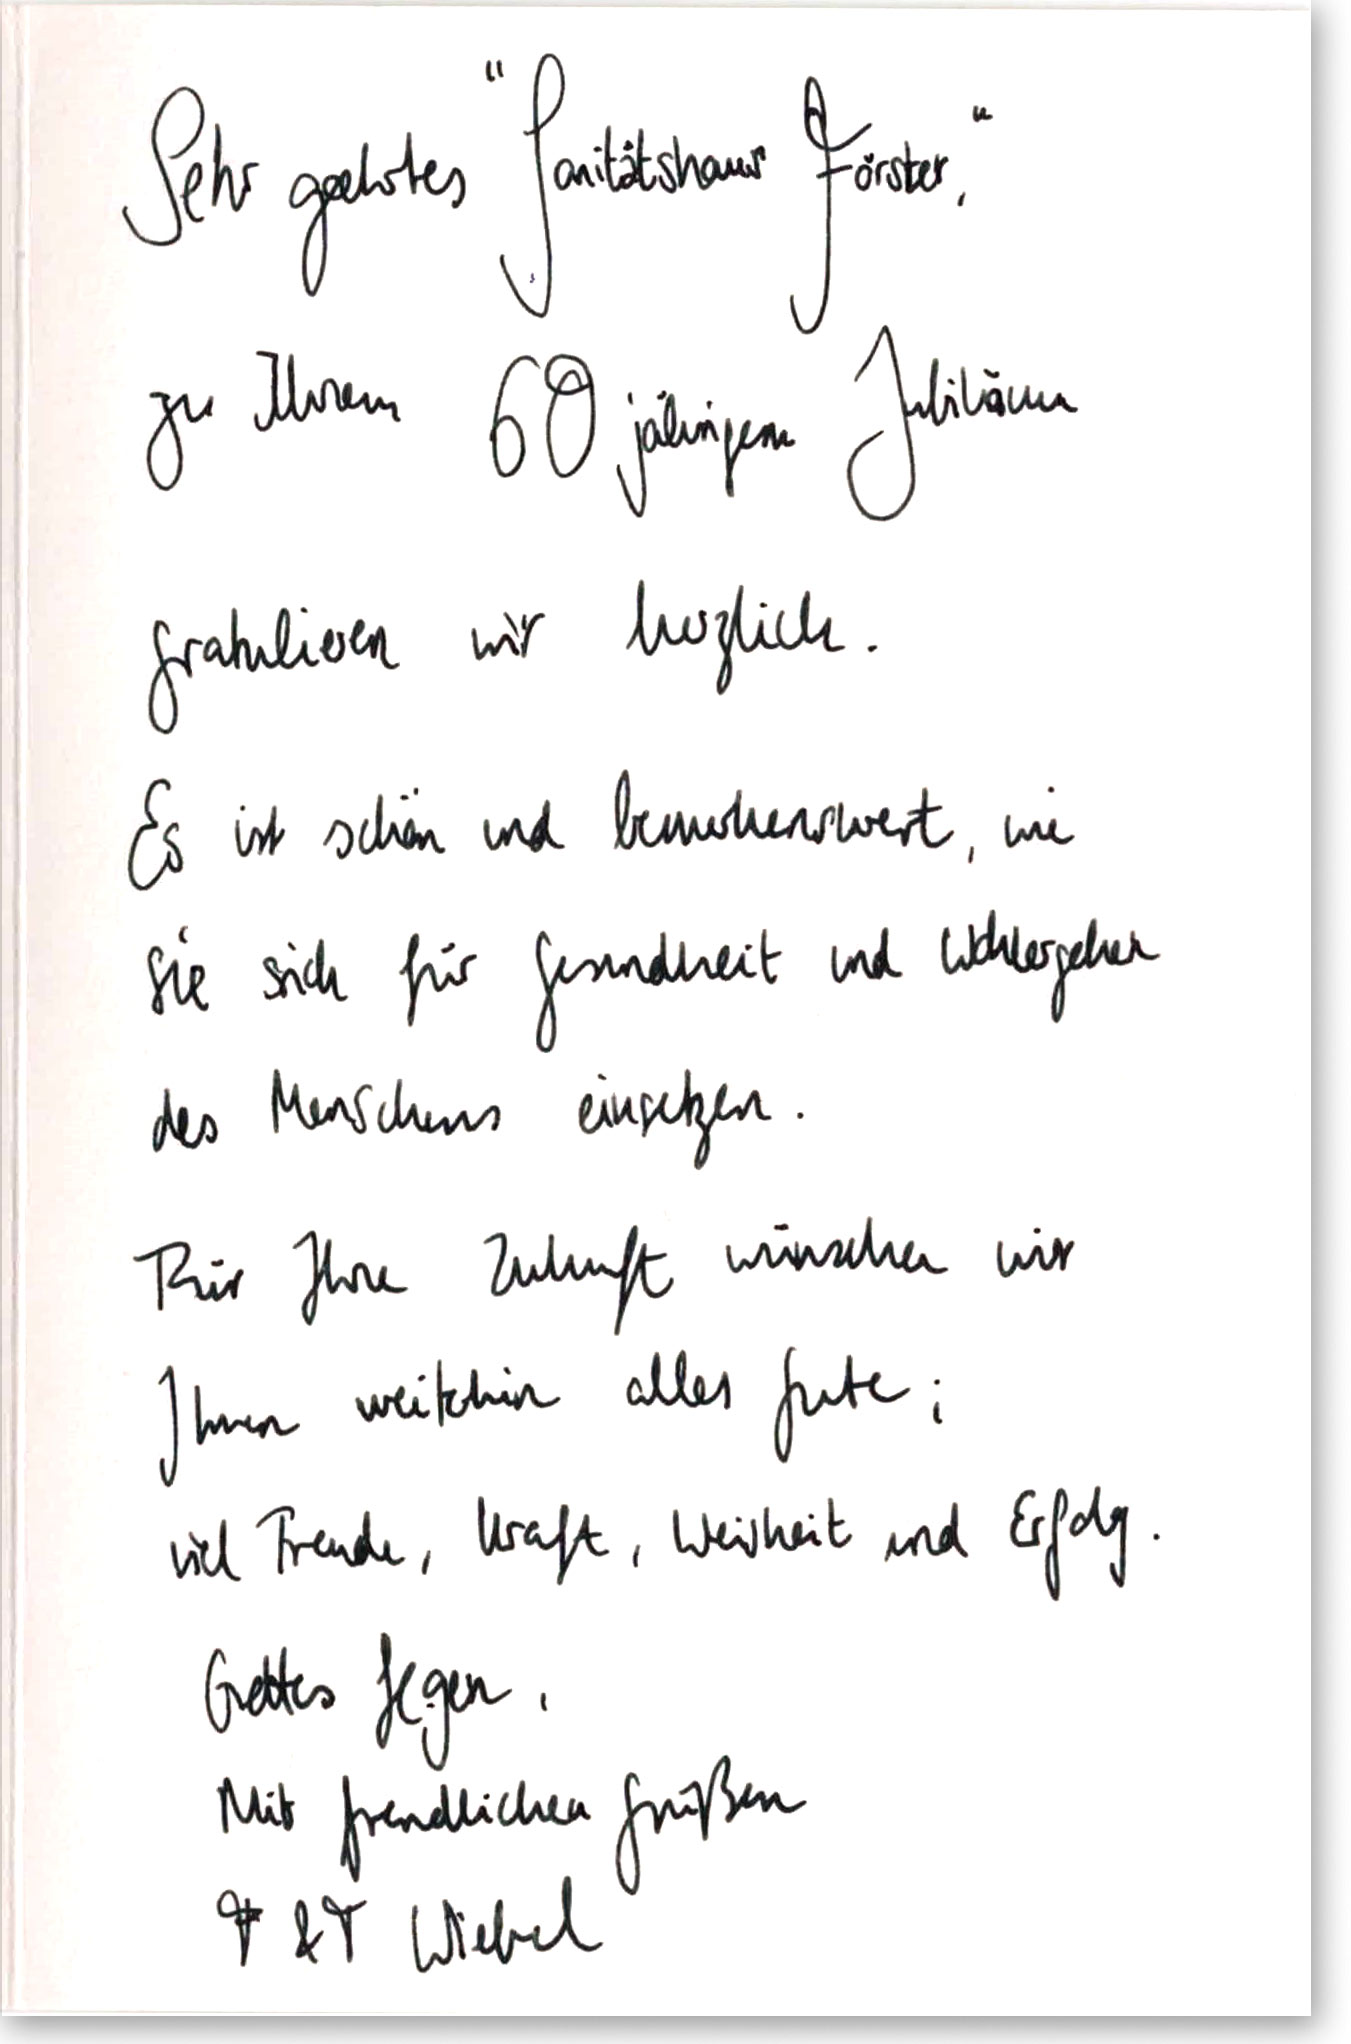 Sehr geehrtes "Sanitätshaus Förster,"
zu Ihrem 60 jährigem Jubiläum
gratulieren wir herzlich.
Es ist schön und bemerkenswert, wie
Sie sich für Gesundheit und Wohlergehen
des Menschens einsetzen.
Für Ihre Zukunft wünschen wir
Ihnen weiterhin alles gute;
viel Freude, Kraft, Weisheit und Erfolg.
Gottes Segen,
Mit freundlichen Grüßen
F & T Wiebel